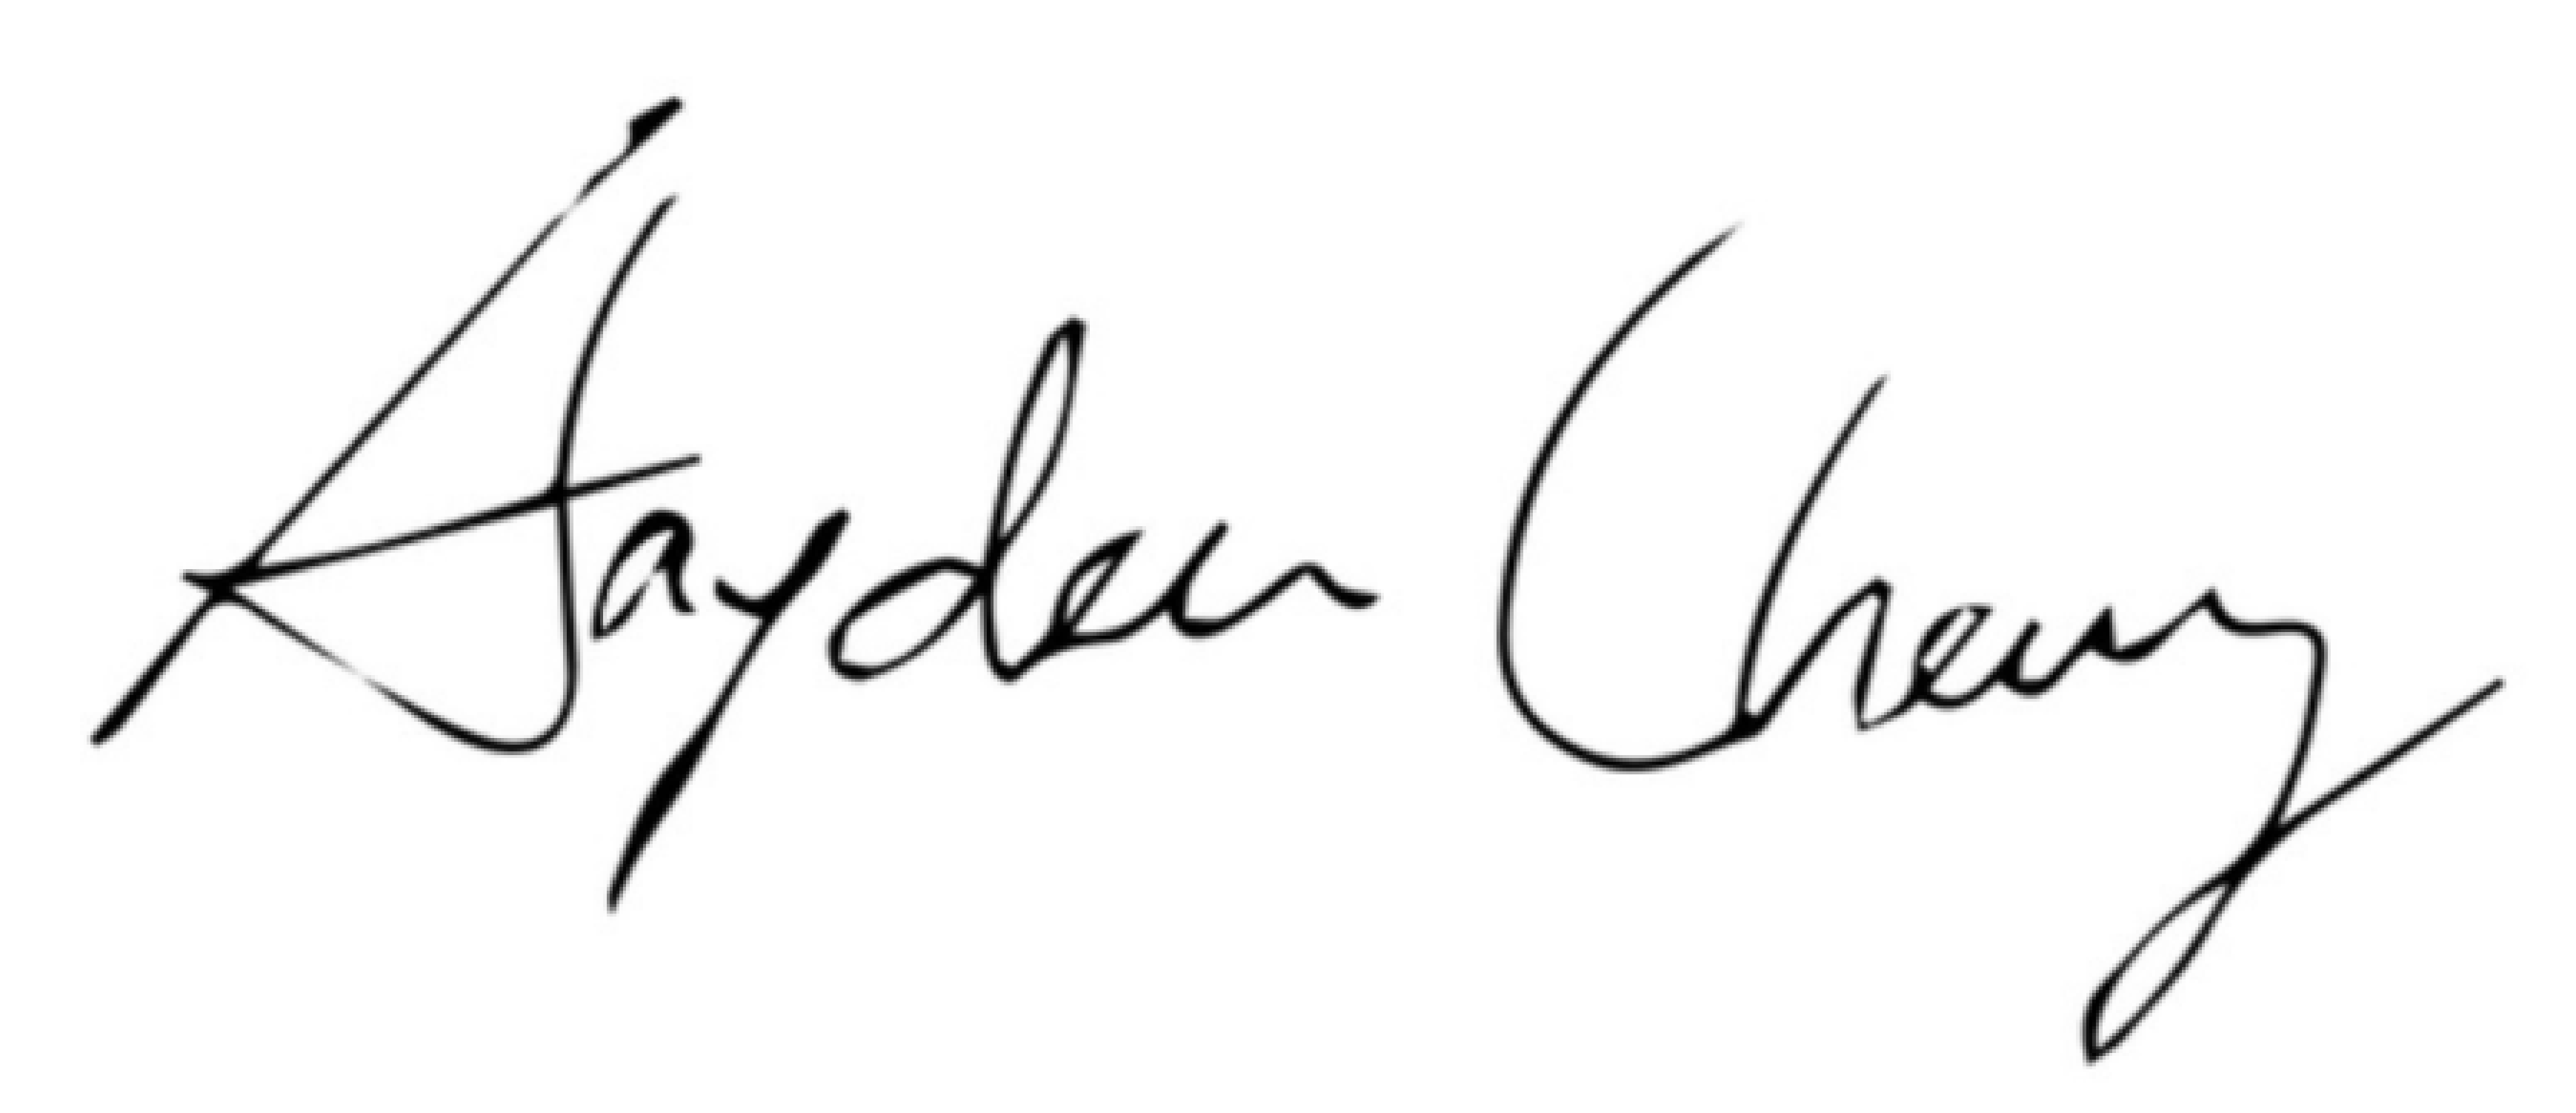 Hayden Cheung